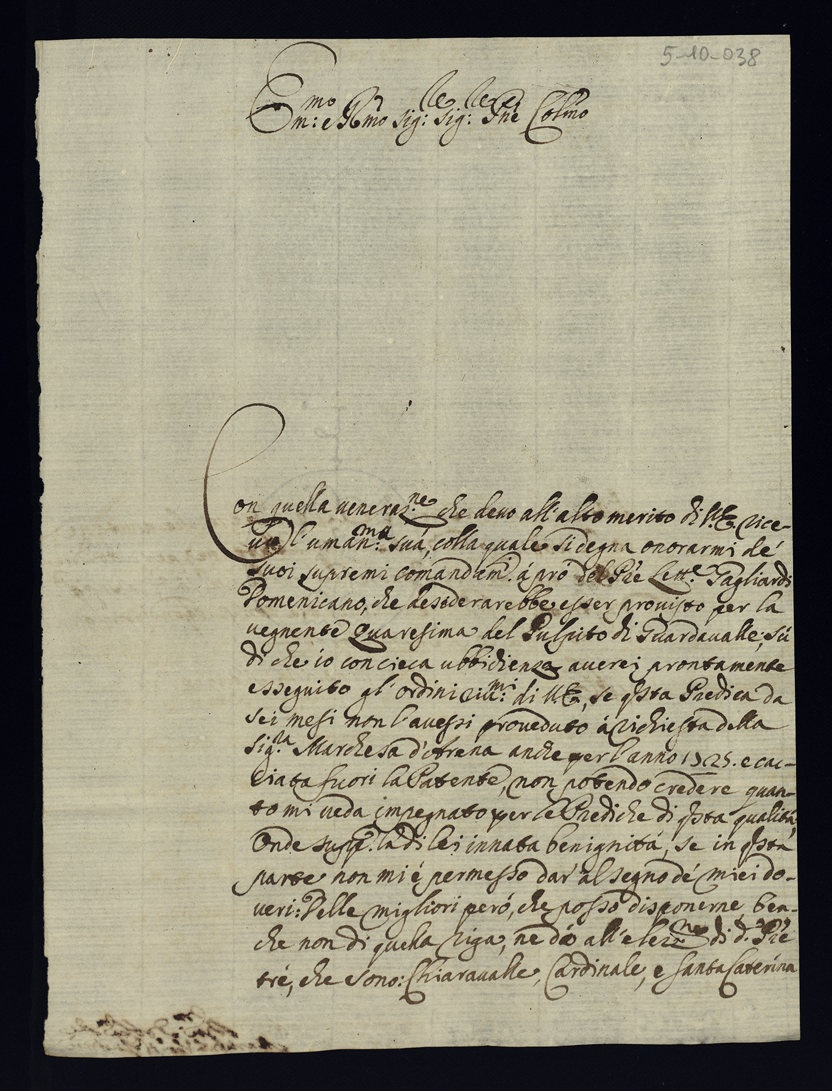 5-10-038
Em:mo e R.mo Sig:re Sig:re Pne Colmo
Con quella veneraz.ne che devo all'alto merito di V.E. rice-
vo l'uman.ma sua, colla quale si degna onorarmi de'
suoi supremi comandam.ti à prò del Pre Lett.e Tagliardi
Domenicano, che desiderarebbe esser provisto per la
vegnente Quaresima del Pulpito di Guardavalle; sù
di che io con cieca ubbidienza averei prontamente
esseguito gl'ordini rive.mi di V.E., se qsta Predica da
sei mesi non l'avessi proveduto à richiesta della
Sig.ra Marchesa d'Arena anche per l'anno 1725. e cac-
ciata fuori la Patente, non potendo credere quan-
to mi veda impegnato per le Prediche di qsta qualità
Onde supp.co la di lei innata benignità, se in qsta
parte non mi è permesso dar' al segno de' miei do-
veri: Delle migliori però, che posso disponerne ben-
che non di quella riga, ne dò all'elez.ne di d.o Pre
trè, che sono: Chiaravalle, Cardinale, e Santa Caterina